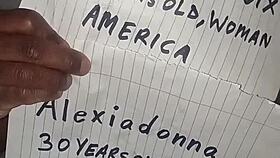 SOLD, WOMAN
AMERICA
Alexiadonna
30 YEARS